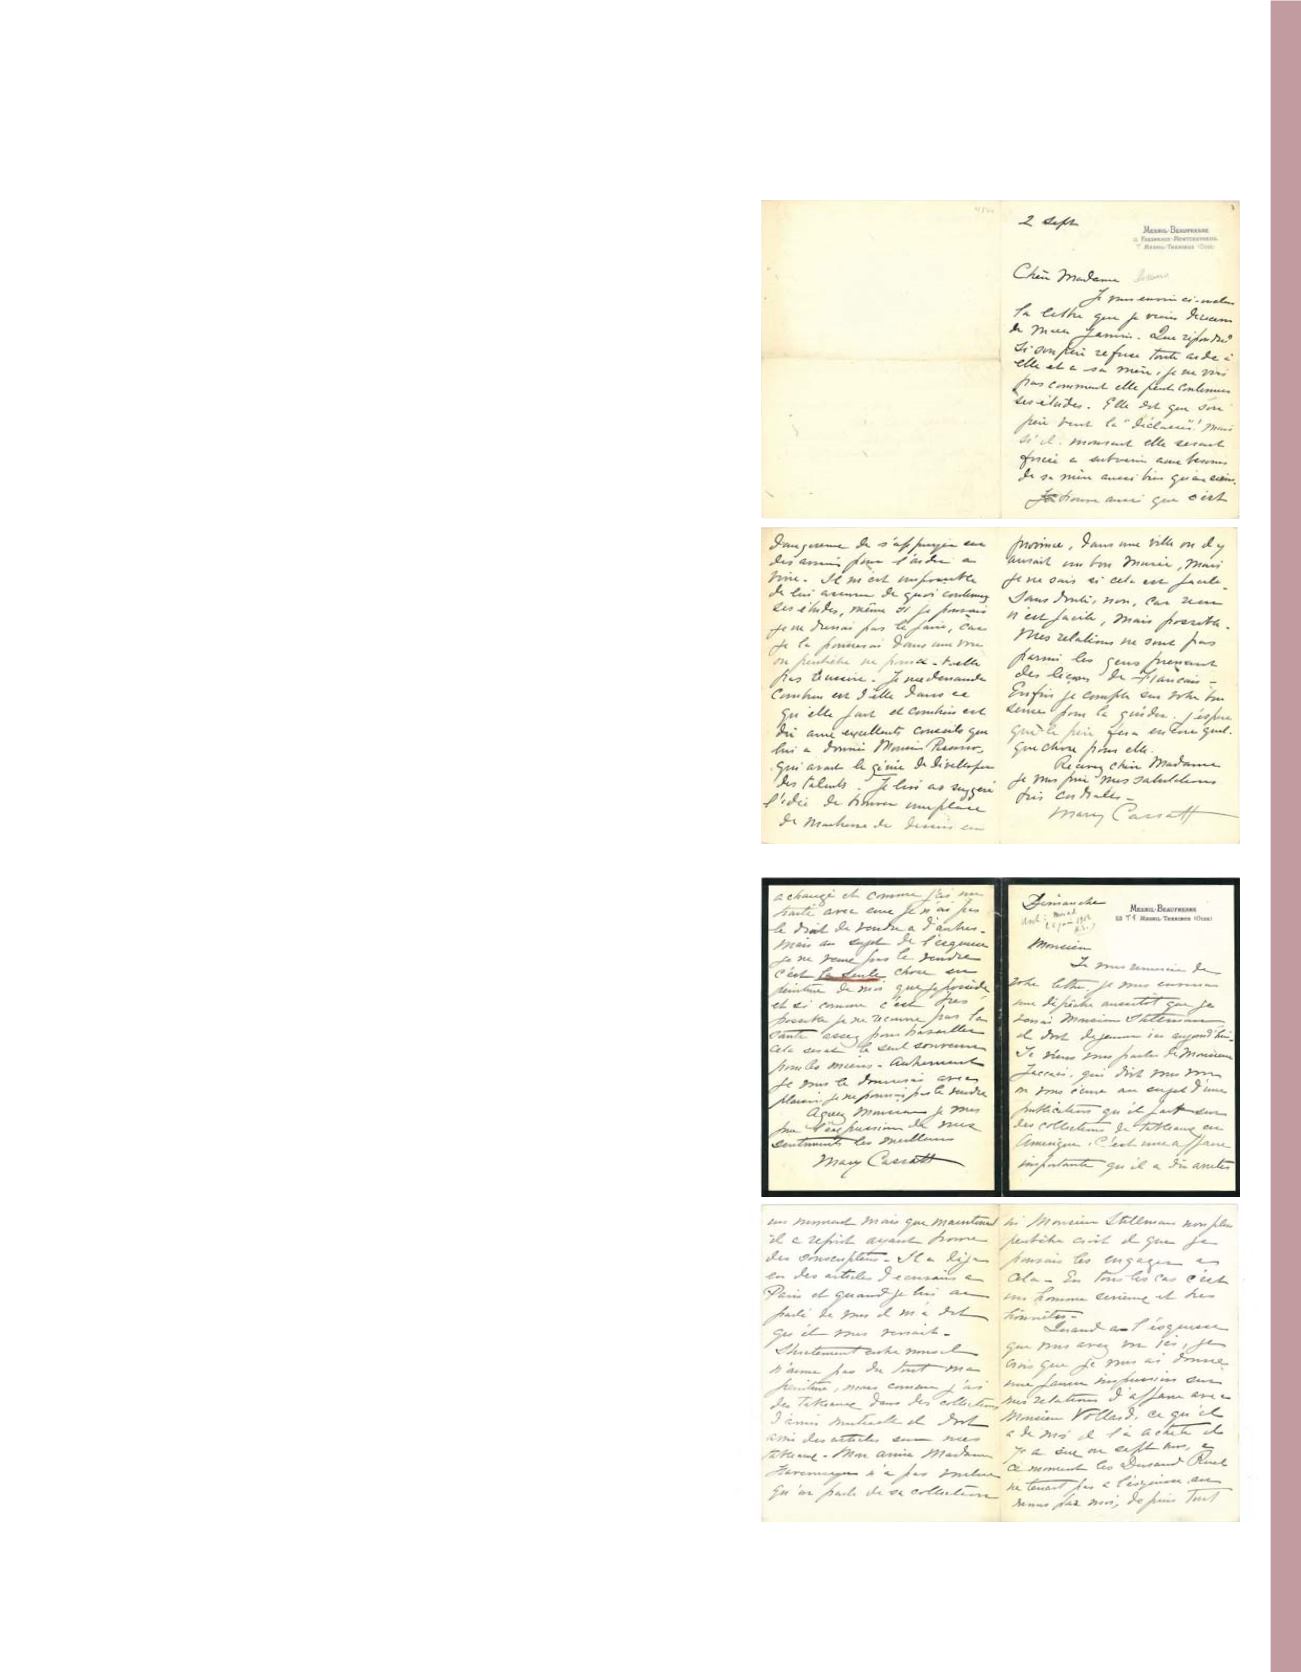 2 Sept
MESNIL-BEAUFRESNE
MESNIL-THERIBUS (OISE)
Chère Madame
Je vous envoie ci-inclus
la lettre que je viens de recevoir
de Melle Jannin. Que répondre?
Si son père refuse toute aide à
elle et a sa mère, je ne vois
pas comment elle peut continuer
ses études. Elle dit que son
père veut la "déclasser"! mais
s'il mourait elle serait
forcée a subvenir aux besoins
de sa mère aussi bien qu'au sien.
Je trouve aussi que c'est
dangereux de s'appuyer sur
des amis pour l'aider a
vivre. Il m'est impossible
de lui assurer de quoi continuer
ses études, même si je pouvais
je ne devrai pas le faire, car
je la pousserai dans une voie
ou peutêtre ne pourra-t-elle
pas réussire. Je me demande
combien est d'elle dans ce
qu'elle fait et combien est
du aux excellents conseils que
lui a donnés Monsieur Pissarro,
qui avait le génie de développer
des talents. Je lui ai suggéré
l'idée de trouver une place
de Maitresse de dessin en
province, dans une ville ou il y
aurait un bon Musée, mais
je ne sais si cela est facile.
Sans doute, non, car rien
n'est facile, mais possible.
Mes relations ne sont pas
parmi les gens prenant
des leçons de Français-
Enfin je compte sur votre bon
sense pour la guider. j'espère
que le père fera encore quel-
que chose pour elle.
Recevez chère Madame
je vous prie mes salutations
très cordiales-
Mary Cassatt
Dimanche
MESNIL-BEAUFRESNE
MESNIL-THERIBUS (OISE)
Monsieur
Je vous remercie de
votre lettre. Je vous enverrai
une dépêche aussitôt que je
verrai Monsieur Stillman
il doit dejeuner ici aujourd'hui.
Je viens vous parler de Monsieur
Jaccaci, qui doit vous voir
ou vous écrire au sujet d'une
publication qu'il fait sur
des collections de tableaux en
Amérique. C'est une affaire
importante qu'il a du arreter
un moment mais que maintenant
il a reprit ayant trouvé
des souscripteurs- Il a deja
eu des articles d'écrivains a
Paris et quand je lui ai
parlé de vous il m'a dit
qu'il vous verrait-
Strictement entre nous il
n'aime pas du tout ma
peinture, mais comme j'ai
des tableaux dans des collections
d'amis mutuels il doit
avoir des articles sur mes
tableaux- Mon amie Madame
Havemeyer n'a pas voulue
qu'on parle de sa collection
ni Monsieur Stillman non plus
peutêtre croit il que je
pourais les engager a
cela- En tous les cas c'est
un homme serieux et tres
honnête-
Quand a l'esquisse
que vous avez vu ici, je
crois que je vous ai donné
une fausse impression sur
mes relations d'affaire avec
Monsieur Vollard, ce qu'il
a de moi il l'a acheté il
y a six ou sept ans, a
ce moment les Durand Ruel
ne tenait pas a l'esquisse
depuis tout
a changé et comme j'ai un
traité avec eux je n'ai pas
le droit de vendre a d'autres-
Mais au sujet de l'esquisse
je ne veux pas la vendre
c'est la seule chose en
peinture de moi que je possède
et si comme c'est très
possible je ne recouvre pas la
santé assez pour travailler
cela serait le seul souvenir
pour les miens- Autrement
je vous le donnerais avec
plaisir, je ne pourrai pas le vendre
Agreez Monsieur je vous
prie l'expression de mes
sentiments les meilleurs
Mary Cassatt